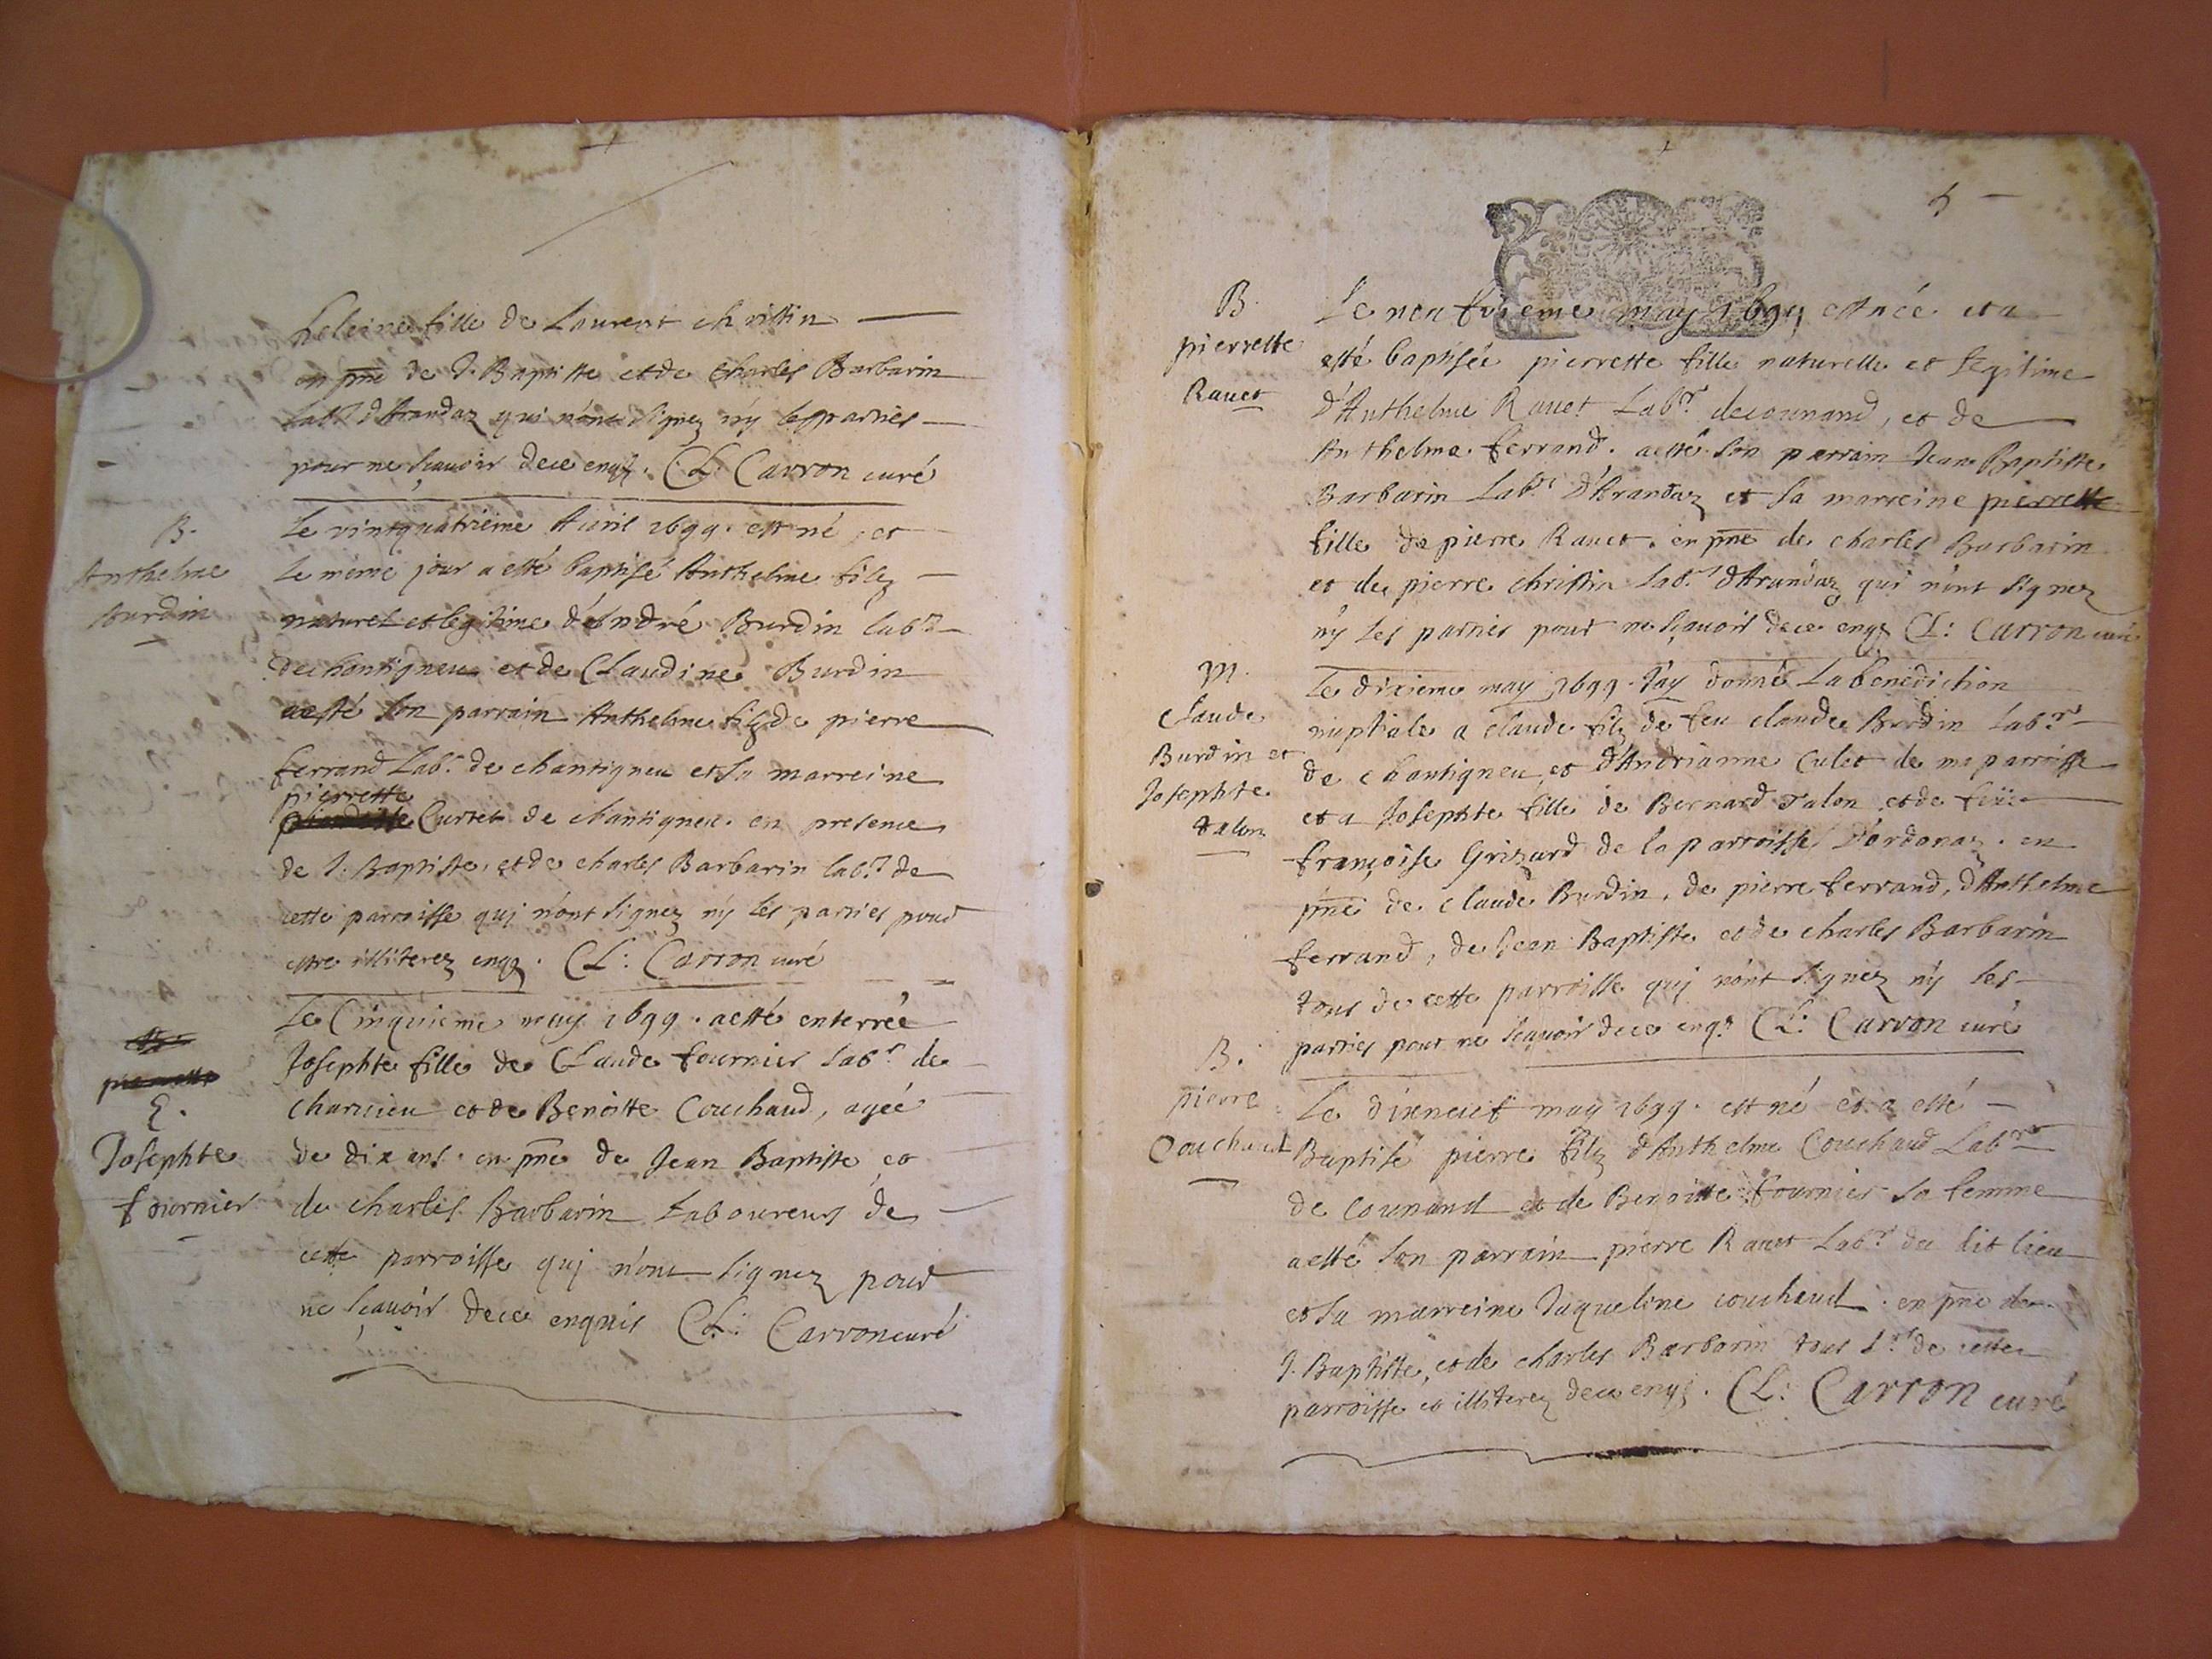 heleine fille de Laurent christin
en pñce de J. Baptiste et de Charles Barbarin
Lab.rs d'Arandaz qui n'ont signez n'y les parties
pour ne sçavoir de ce enqs. CL: Carron curé
B.
Anthelme
Burdin
Le vintquatrieme Avril 1699. est né, et
le même jour a esté baptisé Anthelme filz
naturel et legitime d'André Burdin lab.r
de chantigneu et de Claudine Burdin
a esté son parrain Anthelme filz de pierre
ferrand Lab.r de chantigneu et sa marreine
pierrette
Curtet de chantigneu. en presence
de J. Baptiste, et de charles Barbarin lab.rs de
cette parroisse quj n'ont signez n'y les parties pour
estre illiterez enqs. CL: Carron curé
E.
Josephte
fournier
Le Cinquieme may 1699. a esté enterrée
Josephte fille de Claude fournier Lab.r de
charvieu et de Benoitte Couchaud, agée
de dix ans. en pñce de Jean Baptiste et
de charles Barbarin Laboureurs de
cette parroisse quj n'ont signez pour
ne sçavoir de ce enquis CL: Carron curé
5
B.
pierrette
Ravet
Le neufvieme may 1699 est née et a
esté baptisée pierrette fille naturelle et legitime
d'Anthelme Ravet Lab.r de counand, et de
Anthelma ferrand. a esté son parrain Jean Baptiste
Barbarin Lab.r d'Arandaz et sa marreine pierrette
fille de pierre Ravet. en pñce de charles Barbarin
et de pierre christin lab.rs d'Arandaz qui n'ont signez
n'y les parties pour ne sçavoir de ce enqs CL: Carron curé
M.
Claude
Burdin et
Josephte
talon
Le dixieme may 1699. J'ay donné La benediction
nuptiale a claude filz de feu claude Burdin Lab.r
de chantigneu et d'Andrianne Culet de ma parroisse
et a Josephte fille de Bernard Talon et de feüe
françoise Grizard de la parroisse d'ordonaz. en
pñce de claude Burdin, de pierre ferrand, d'Anthelme
ferrand, de Jean Baptiste et de charles Barbarin
tous de cette parroisse quj n'ont signez n'y les
parties pour ne sçavoir de ce enqs CL: Carron curé
B.
pierre
Couchaud
Le dixneuf may 1699. est né et a esté
Baptisé pierre filz d'Anthelme Couchaud Lab.r
de counand et de Benoitte fournier sa femme
a esté son parrain pierre Ravet Lab.r du dit lieu
et sa marreine Jaqueline couchaud. en pñce de
J. Baptiste, et de charles Barbarin tous L.rs de cette
parroisse et illiterez de ce enqs. CL: Carron curé